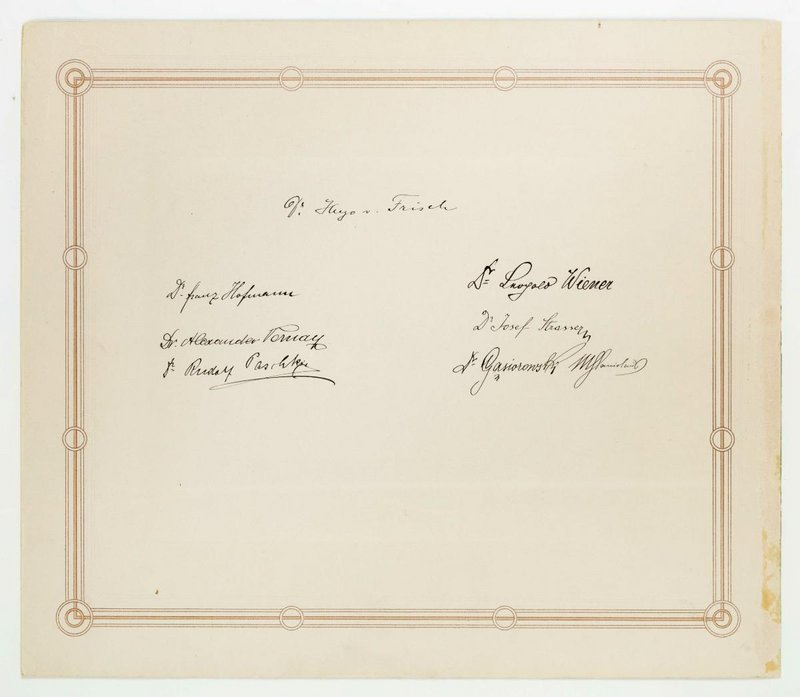 Dr Hugo v. Frisch
Dr Franz Hofmann
Dr. Alexander Ternay
Dr. Rudolf Paschkis
Dr Leopold Wiener
Dr Josef Strasser
Dr Gąsiorowski